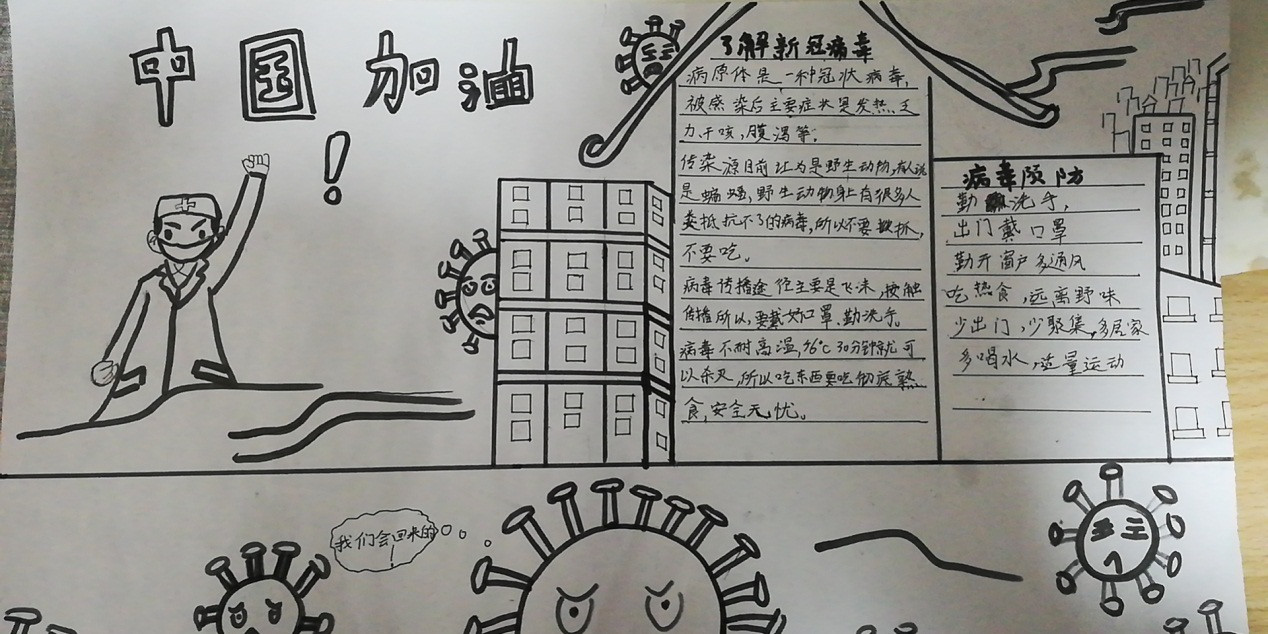 中国加油
！
了解新冠病毒
病原体是一种冠状病毒,
被感染后主要症状是发热乏
力干咳,腹泻等;
传染源目前认为是野生动物,有人说
是蝙蝠,野生动物身上有很多人
类抵抗不了的病毒,所以不要抓,
不要吃。
病毒传播途径主要是飞沫,接触
传播所以,要戴好口罩、勤洗手。
病毒不耐高温,56℃30分钟就可
以杀灭,所以吃东西要吃彻底熟
食,安全无忧。
病毒预防
勤洗手,
出门戴口罩
勤开窗户多通风
吃热食,远离野味
少出门,少聚集,多居家
多喝水,适量运动
我们会回来的
!